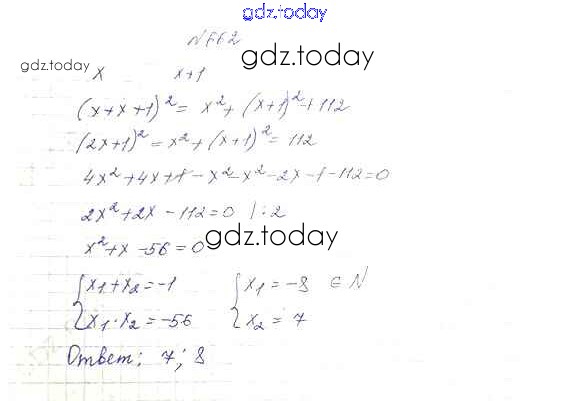 gdz.today
N662
gdz.today
gdz.today x x+1
(x+x+1)² = x² + (x+1)² + 112
(2x+1)² = x² + (x+1)² = 112
4x² + 4x + 1 - x² - x² - 2x - 1 - 112 = 0
2x² + 2x - 112 = 0 | : 2
x² + x - 56 = 0
gdz.today
{ x₁ + x₂ = -1 { x₁ = -8 ∈ N
x₁ · x₂ = -56 x₂ = 7
Ответ: 7; 8